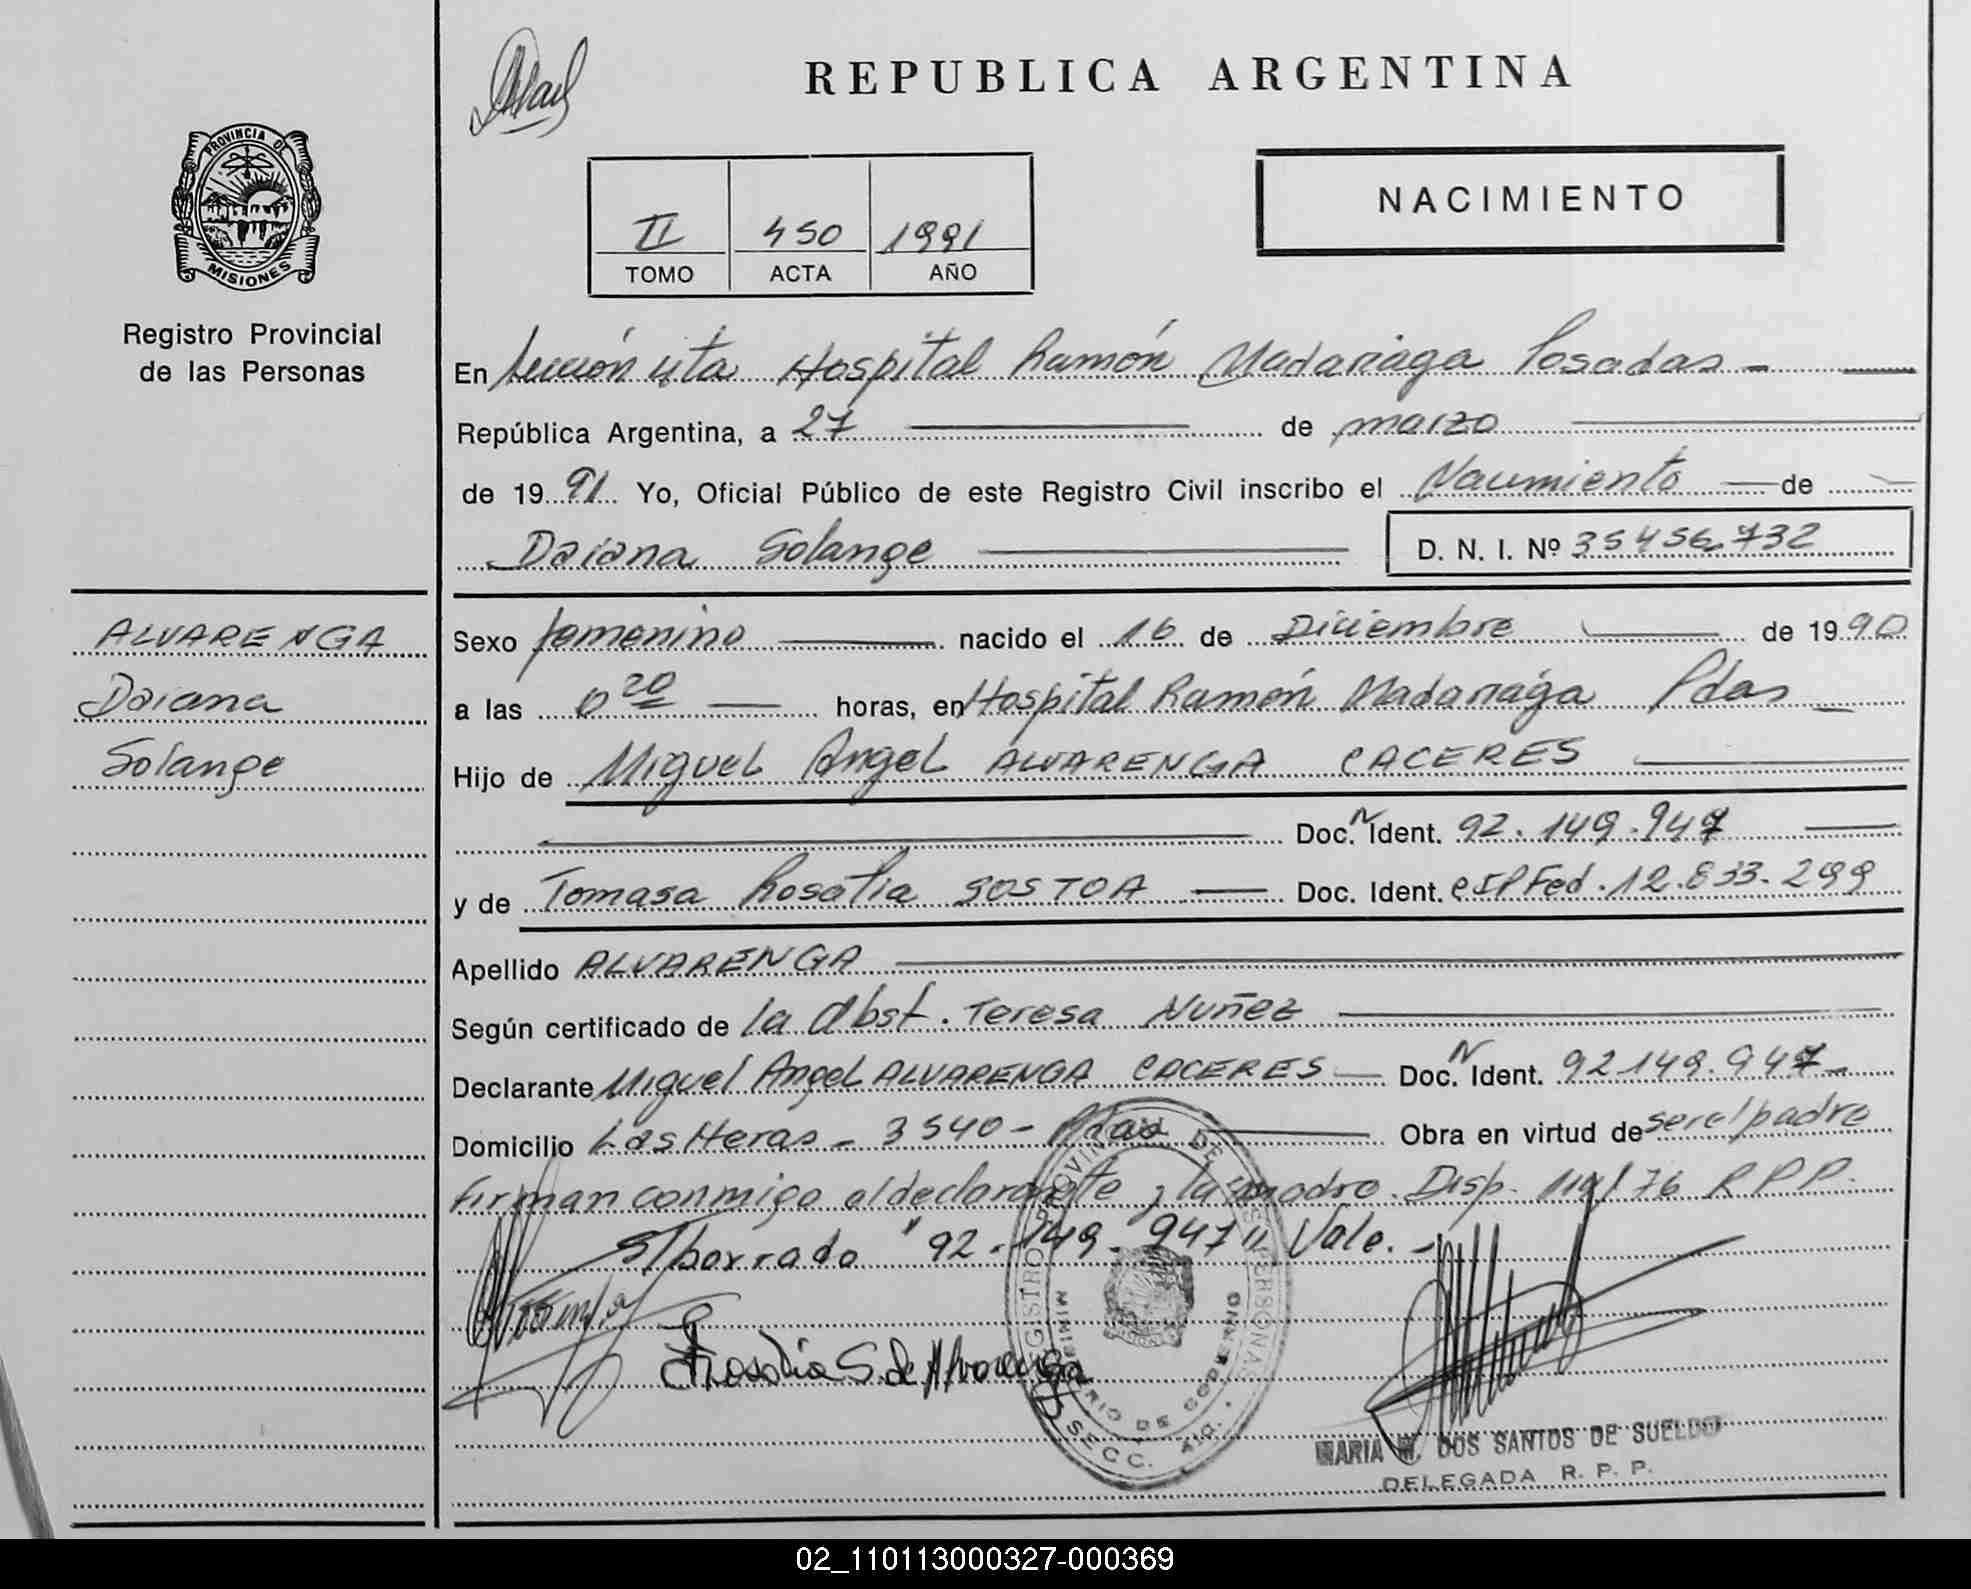 REPUBLICA ARGENTINA
PROVINCIA DE
MISIONES
Registro Provincial
de las Personas
II 450 1991
TOMO ACTA AÑO
NACIMIENTO
En Sección 4ta Hospital Ramón Madariaga Posadas -
República Argentina, a 27 de marzo
de 1991 Yo, Oficial Público de este Registro Civil inscribo el Nacimiento de
Daiana Solange D. N. I. Nº 35456.732
ALVARENGA
Daiana
Solange
Sexo femenino nacido el 16 de Diciembre de 1990
a las 0 20 horas, en Hospital Ramón Madariaga Pdas
Hijo de Miguel Angel ALVARENGA CACERES
Doc. N Ident. 92.149.947
y de Tomasa Rosalia SOSTOA Doc. Ident. CIPFed. 12.833.299
Apellido ALVARENGA
Según certificado de la Obst. Teresa Nuñez
Declarante Miguel Angel ALVARENGA CACERES Doc. N Ident. 92149.947
Domicilio Las Heras - 3540 - Pdas Obra en virtud de ser el padre
firman conmigo el declarante y la madre. Disp. 76 R P P.
S/borrado "92-149-947" Vale.-
Rosalia S. de Alvarenga
REGISTRO PROVINCIAL DE LAS PERSONAS
MINISTERIO DE GOBIERNO
SECC.
MARIA DOS SANTOS DE SUELDO
DELEGADA R. P. P.
02_110113000327-000369